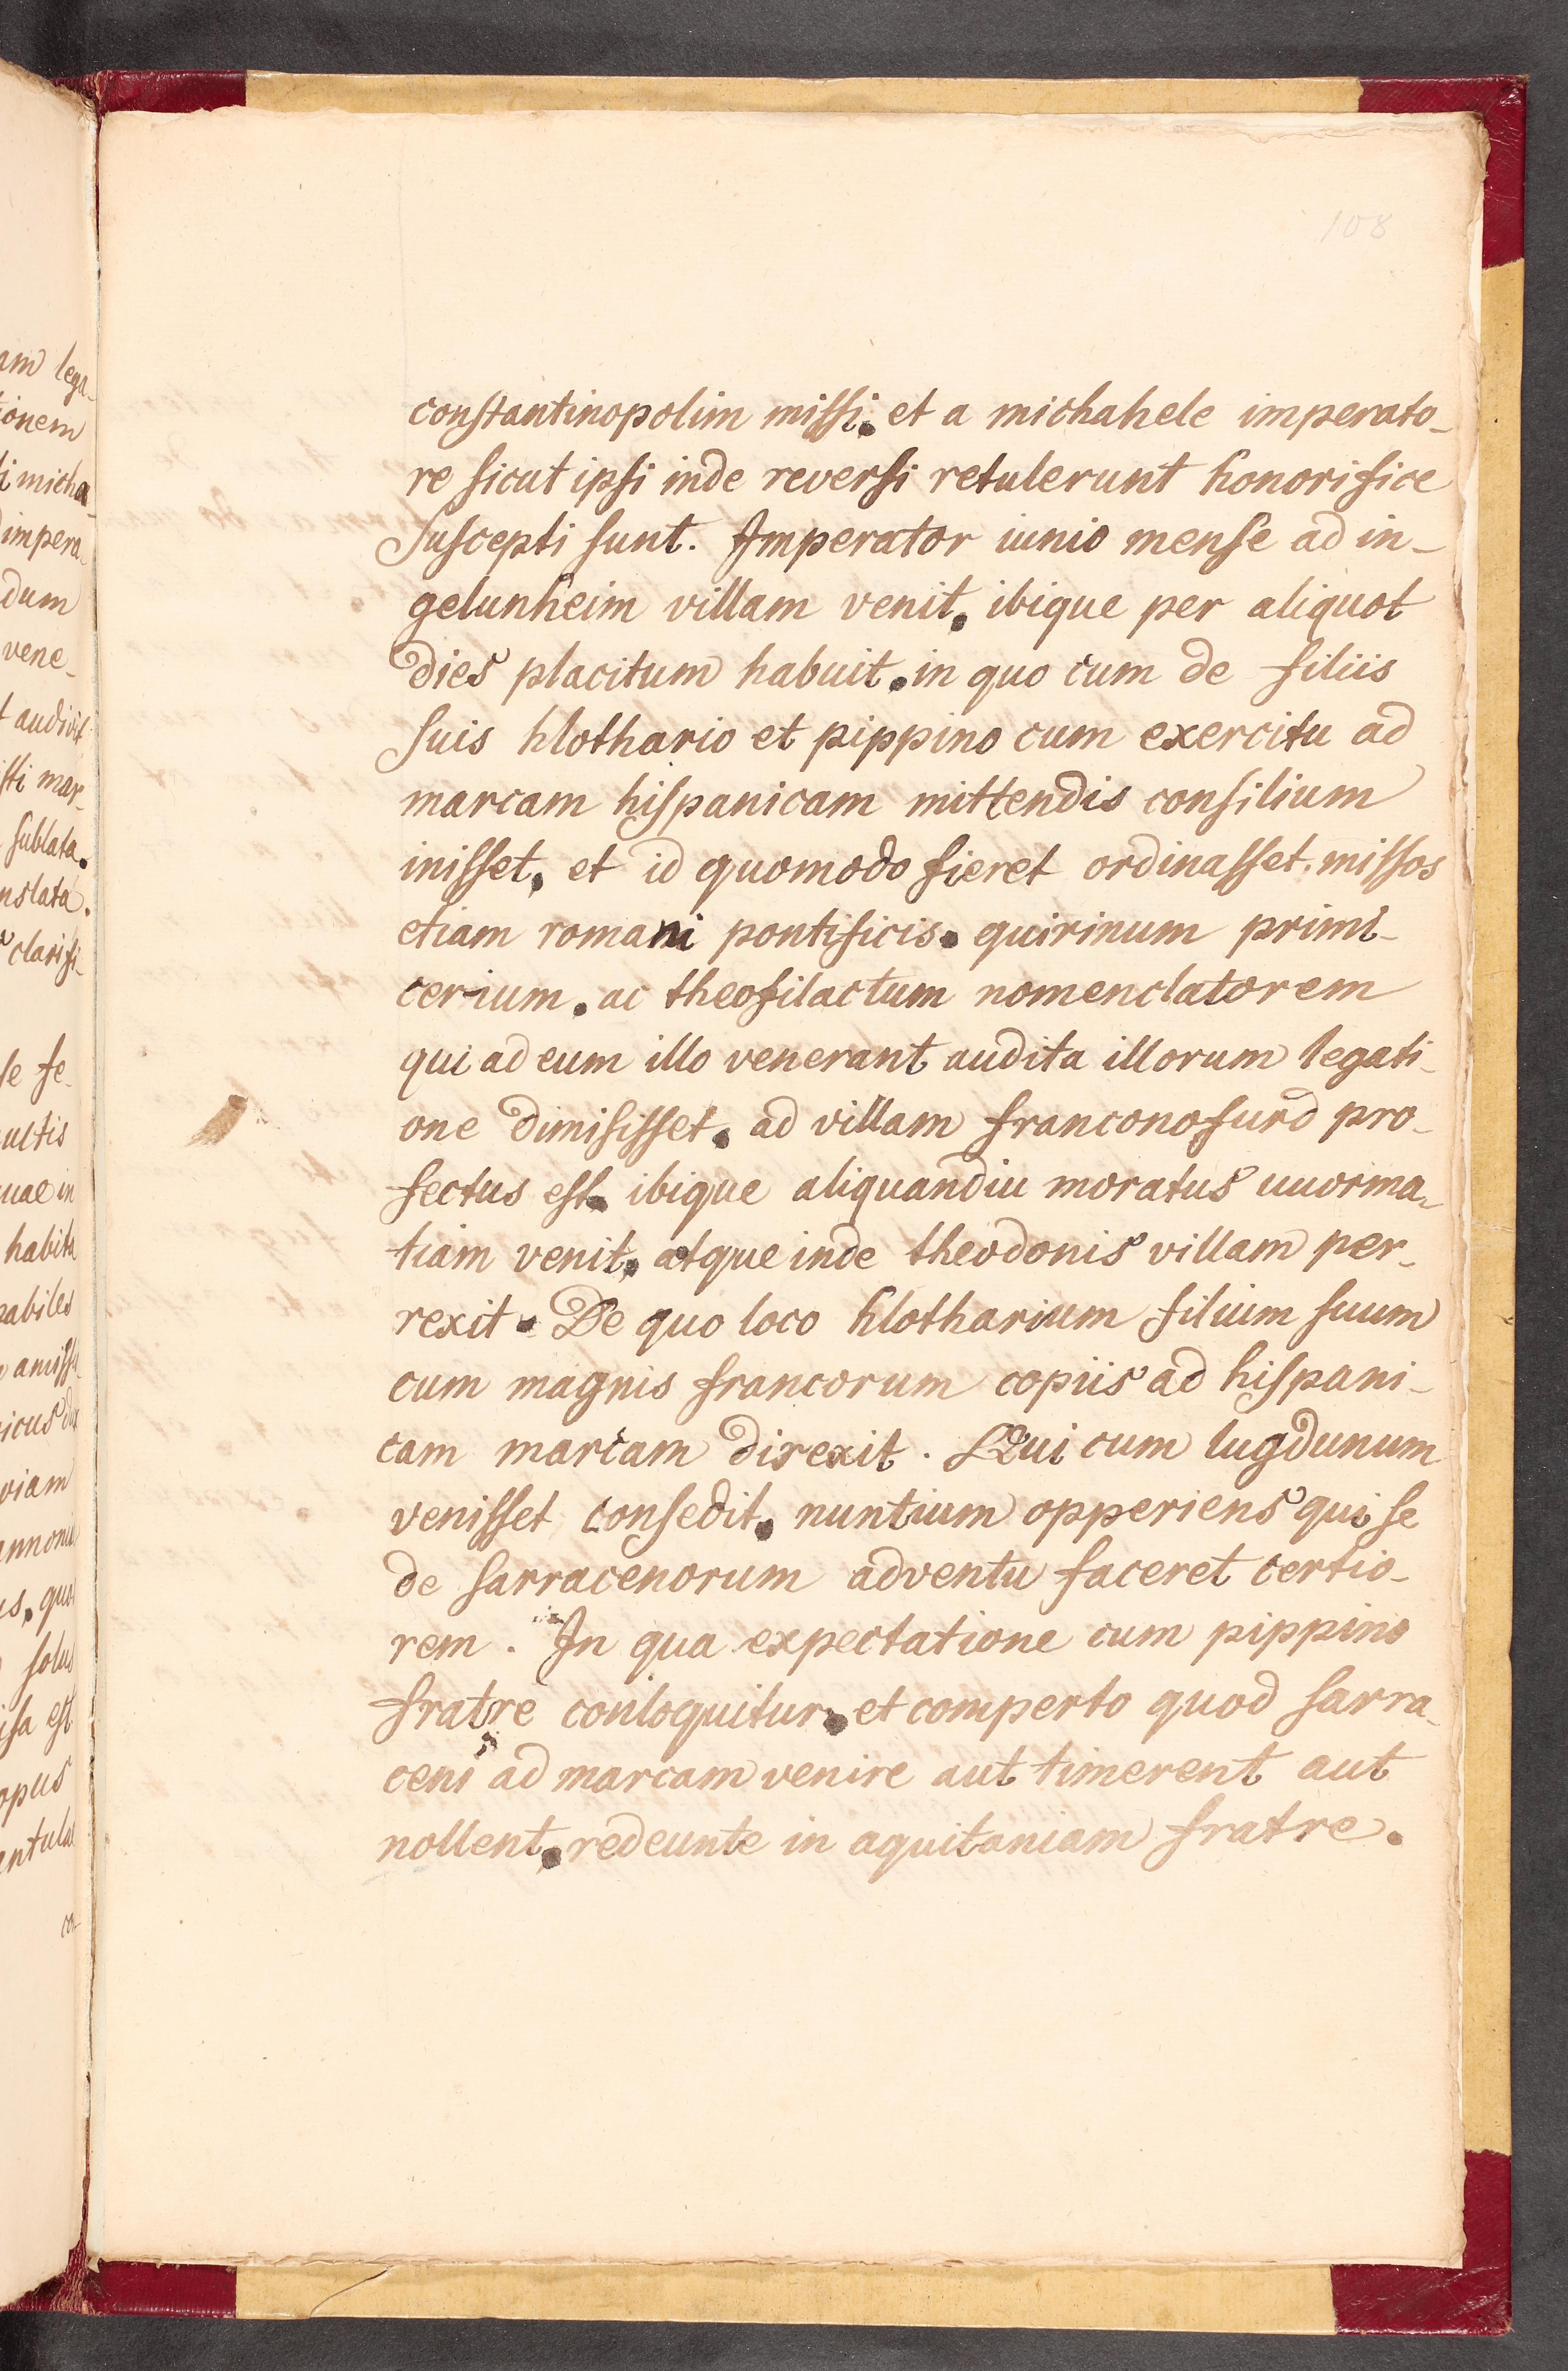 108
constantinopolim missi. et a michahele imperato-
re sicut ipsi inde reversi retulerunt honorifice
suscepti sunt. Imperator iunio mense ad in-
gelunheim villam venit. ibique per aliquot
dies placitum habuit. in quo cum de filiis
suis hlothario et pippino cum exercitu ad
marcam hispanicam mittendis consilium
inisset. et id quomodo fieret ordinasset. missos
etiam romani pontificis. quirinum primi-
cerium. ac theofilactum nomenclatorem
qui ad eum illo venerant audita illorum legati-
one dimisisset. ad villam franconofurd pro-
fectus est. ibique aliquandiu moratus uuorma-
tiam venit. atque inde theodonis villam per-
rexit. De quo loco hlotharium filium suum
cum magnis francorum copiis ad hispani-
cam marcam direxit. Qui cum lugdunum
venisset consedit. nuntium opperiens qui se
de sarracenorum adventu faceret certio-
rem. In qua expectatione cum pippino
fratre conloquitur. et comperto quod sarra-
ceni ad marcam venire aut timerent aut
nollent. redeunte in aquitaniam fratre.